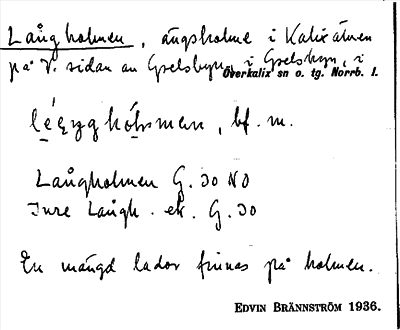 Långholmen, ängsholme i Kalixälven
på V. sidan av Grelsbyn, i Grelsbyn, i
Överkalix sn o. tg. Norrb. l.
bf. m.
Långholmen G. 30 NO
Inre Långh. ek. G. 30
En mängd lador finnas på holmen.
EDVIN BRÄNNSTRÖM 1936.